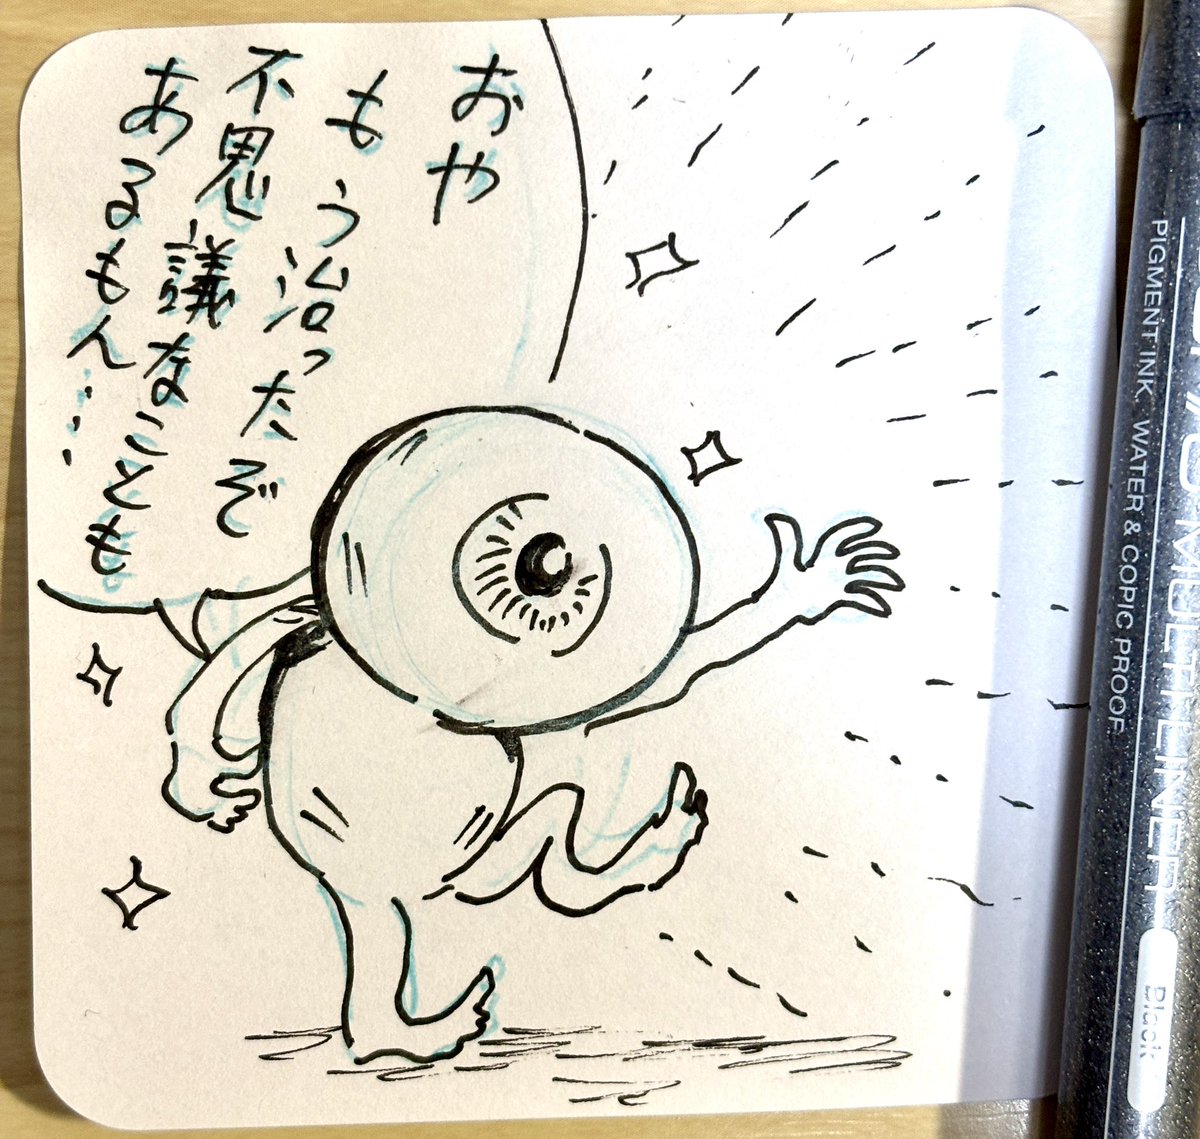 おや
もう治ったぞ
不思議なことも
あるもん…
PIGMENT INK. WATER & COPIC PROOF.
Black